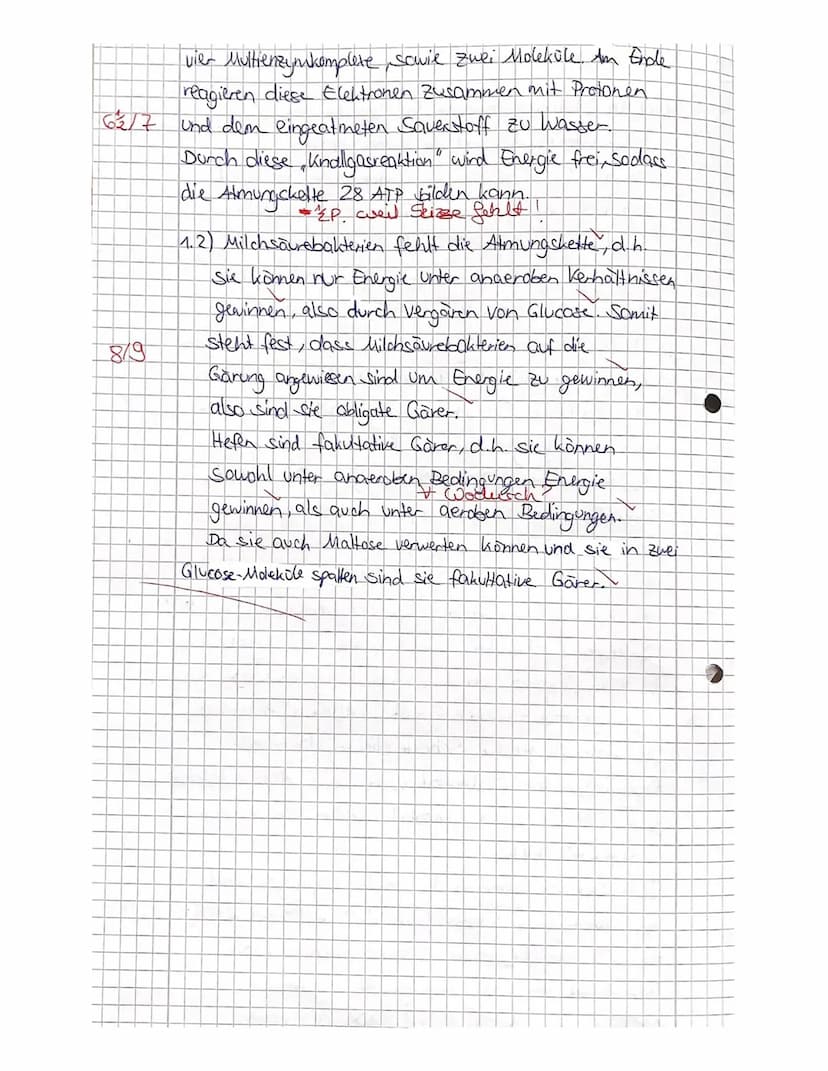 vier Multienzymkomplexe, sowie zwei Moleküle. Am Ende
reagieren diese Elektronen zusammen mit Protonen
6½/7 und dem eingeatmeten Sauerstoff zu Wasser.
Durch diese „Knallgasreaktion" wird Energie frei, sodass
die Atmungskette 28 ATP bilden kann.
-½P. weil Skizze fehlt!
1.2) Milchsäurebakterien fehlt die Atmungskette, d.h.
sie können nur Energie unter anaeroben Verhältnissen
gewinnen, also durch vergären von Glucose. Somit
8/9 steht fest, dass Milchsäurebakterien auf die
Gärung angewiesen sind um Energie zu gewinnen,
also sind sie obligate Gärer.
Hefen sind fakultative Gärer, d.h. sie können
sowohl unter anaeroben Bedingungen Energie
gewinnen, als auch unter aeroben Bedingungen.
Da sie auch Maltose verwerten können und sie in zwei
Glucose-Moleküle spalten sind sie fakultative Gärer.